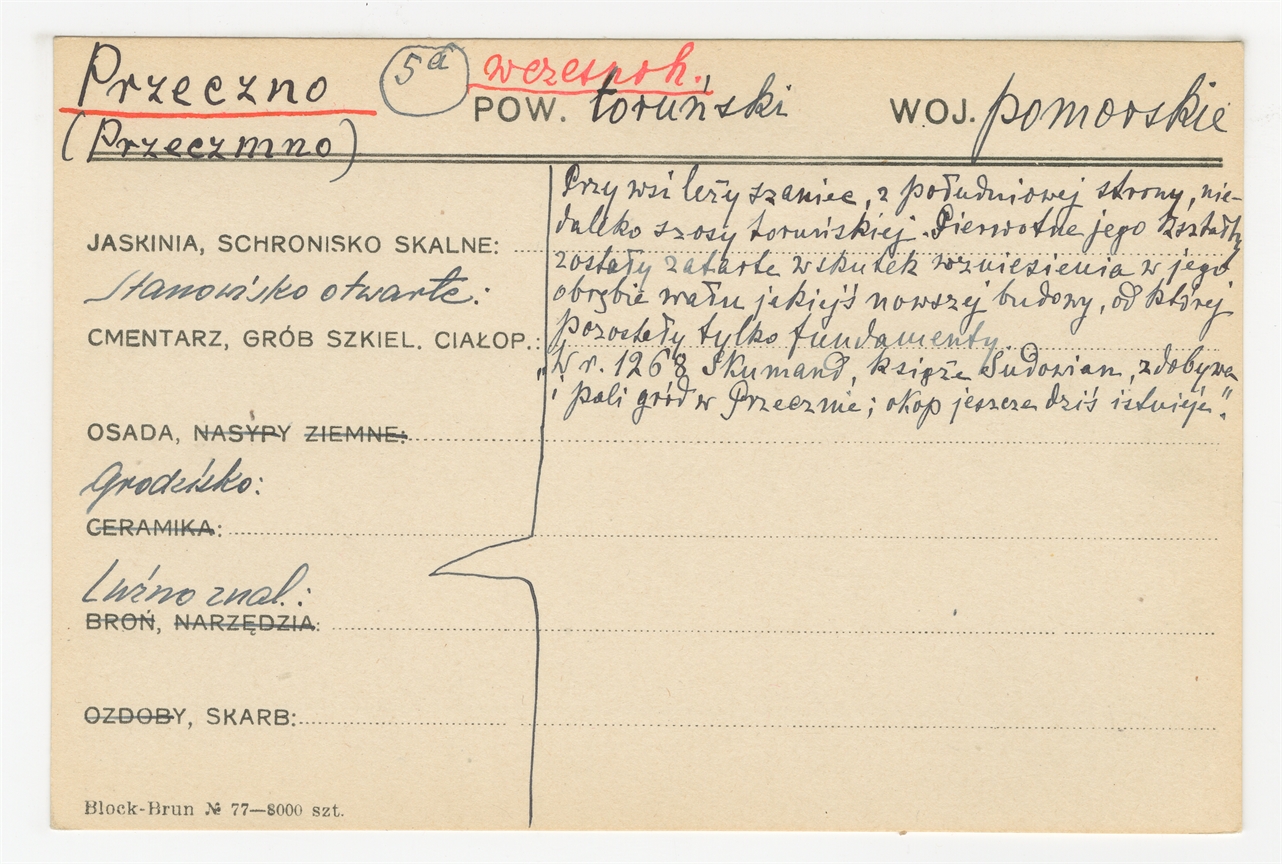 Przeczno
(Przeczmno)
5a
wczesnoh.
POW. toruński
WOJ. pomorskie
JASKINIA, SCHRONISKO SKALNE:
Stanowisko otwarte:
CMENTARZ, GRÓB SZKIEL. CIAŁOP.:
OSADA, NASYPY ZIEMNE:
Grodzisko:
CERAMIKA:
Luźno znal.:
BROŃ, NARZĘDZIA:
OZDOBY, SKARB:
Block-Brun № 77—8000 szt.
Przy wsi leży szaniec, z południowej strony, nie-
daleko szosy toruńskiej. Pierwotne jego kształty
zostały zatarte wskutek wzniesienia w jego
obrębie wału jakiejś nowszej budowy, od której
pozostały tylko fundamenty.
„W r. 1268 Skumand, książe Sudowian, zdobywa
i pali gród w Przecznie; okop jeszcze dziś istnieje".